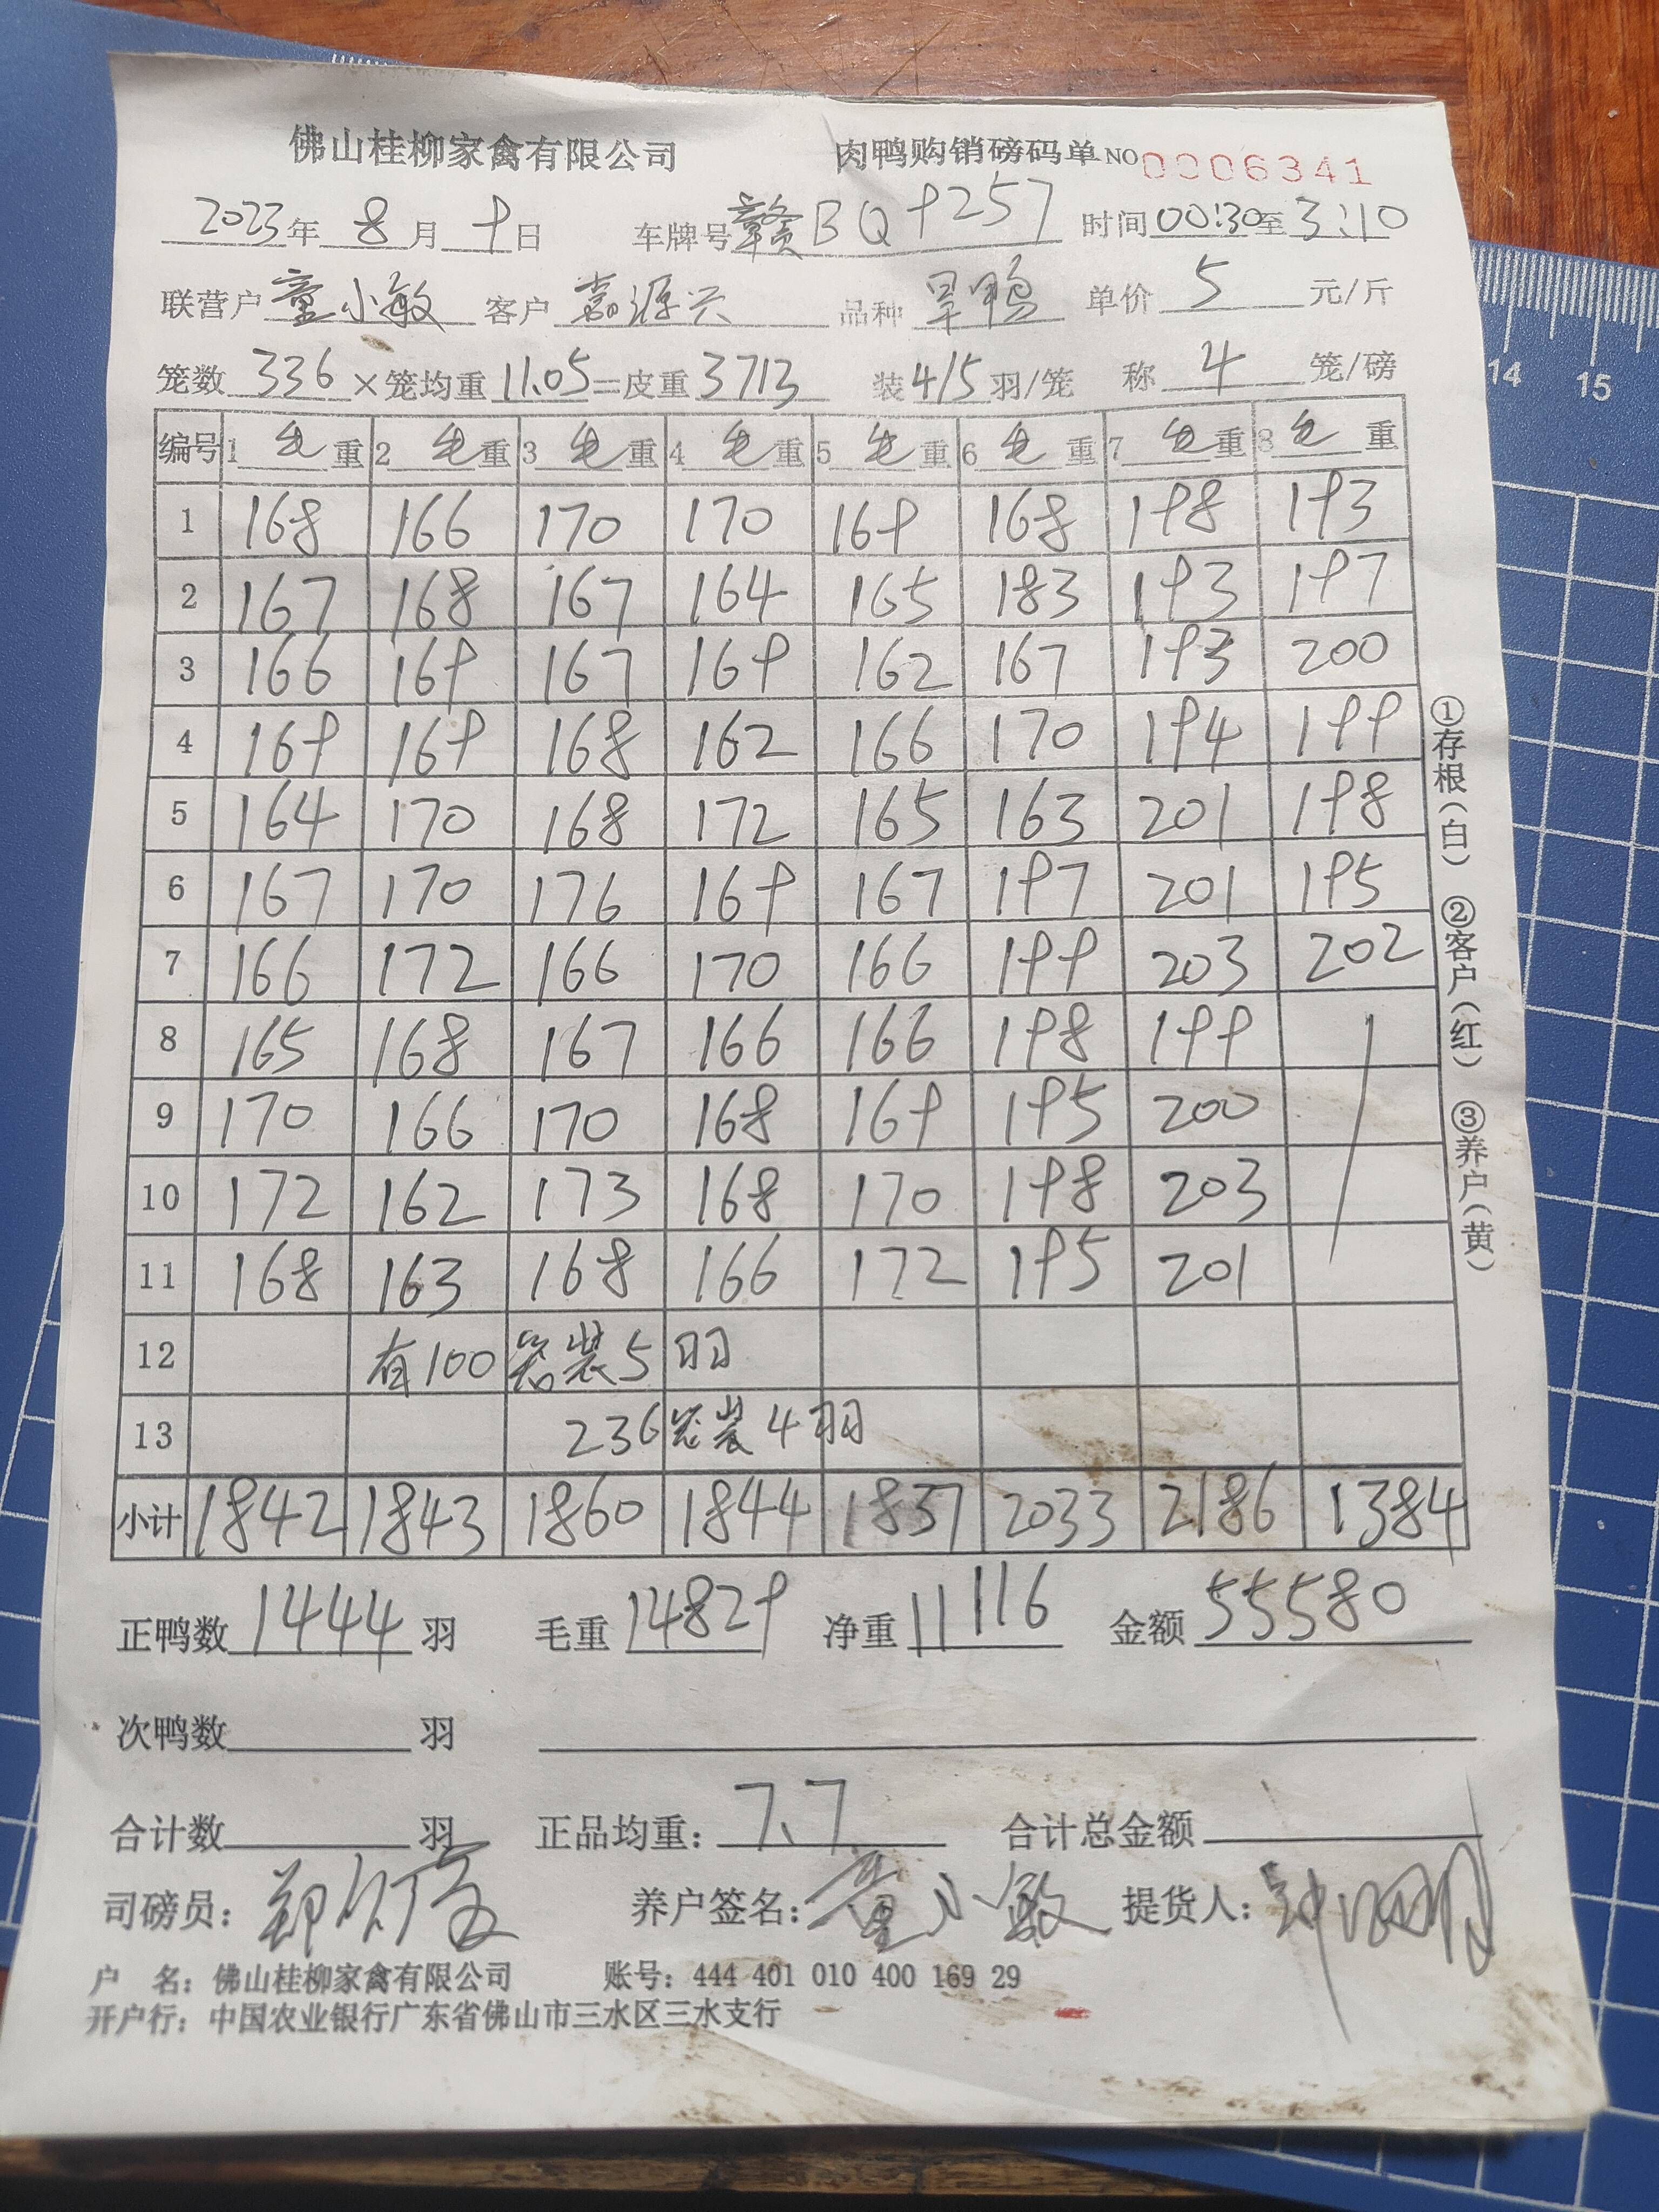 佛山桂柳家禽有限公司 肉鸭购销磅码单 NO 0006341
2023年 8 月 9 日 车牌号 赣BQ9257 时间 00:30 至 3:10
联营户 童小敏 客户 嘉源兴 品种 旱鸭 单价 5 元/斤
笼数 336 ×笼均重 11.05 =皮重 3713 装 4/5 羽/笼 称 4 笼/磅
编号 1 毛 重 2 毛 重 3 毛 重 4 毛 重 5 毛 重 6 毛 重 7 毛 重 8 毛 重
1 168 166 170 170 169 168 198 193
2 167 168 167 164 165 183 193 197
3 166 169 167 169 162 167 193 200
4 169 169 168 162 166 170 194 199
5 164 170 168 172 165 163 201 198
6 167 170 176 169 167 197 201 195
7 166 172 166 170 166 199 203 202
8 165 168 167 166 166 198 199
9 170 166 170 168 169 195 200
10 172 162 173 168 170 198 203
11 168 163 168 166 172 195 201
12 有100笼装5羽
13 236笼装4羽
小计 1842 1843 1860 1844 1837 2033 2186 1384
①存根(白) ②客户(红) ③养户(黄)
正鸭数 1444 羽 毛重 14829 净重 11116 金额 55580
次鸭数 羽
合计数 羽 正品均重: 7.7 合计总金额
司磅员: 养户签名: 童小敏 提货人:
户 名: 佛山桂柳家禽有限公司 账号: 444 401 010 400 169 29
开户行: 中国农业银行广东省佛山市三水区三水支行
14 15